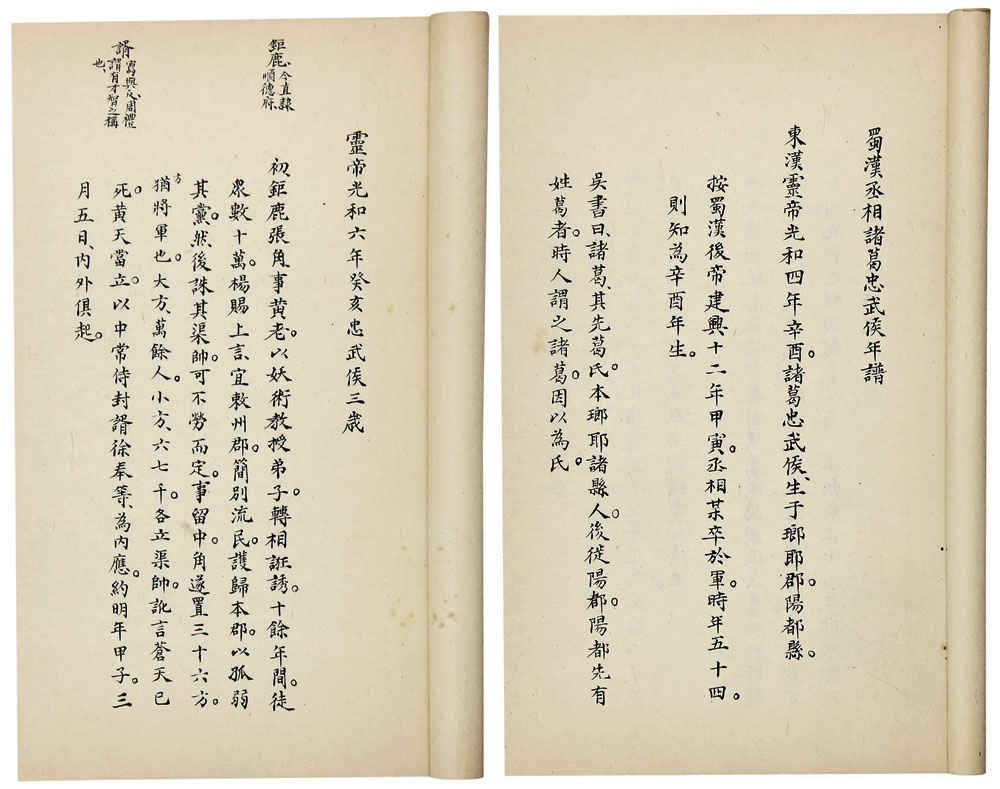 蜀漢丞相諸葛忠武侯年譜
東漢靈帝光和四年辛酉。諸葛忠武侯、生于瑯耶郡。陽都縣。
按蜀漢後帝建興十二年甲寅。丞相某卒於軍。時年五十四。
則知為辛酉年生。
吳書曰、諸葛、其先葛氏。本瑯耶諸縣人。後徙陽都。陽都先有
姓葛者。時人謂之諸葛。因以為氏。
鉅鹿、今直隸
順德府、
諝寫與反、周禮
諝有才智之稱
也、
靈帝光和六年癸亥忠武侯三歲
初、鉅鹿張角、事黃老。以妖術教授弟子。轉相誑誘。十餘年間。徒
眾數十萬。楊賜上言、宜敕州郡。簡別流民。護歸本郡。以孤弱
其黨。然後誅其渠帥。可不勞而定。事留中。角遂置三十六方。
方
猶將軍也。大方、萬餘人。小方、六七千。各立渠帥。訛言蒼天已
死。黃天當立。以中常侍封諝徐奉等、為內應。約明年甲子。三
月五日、內外俱起。